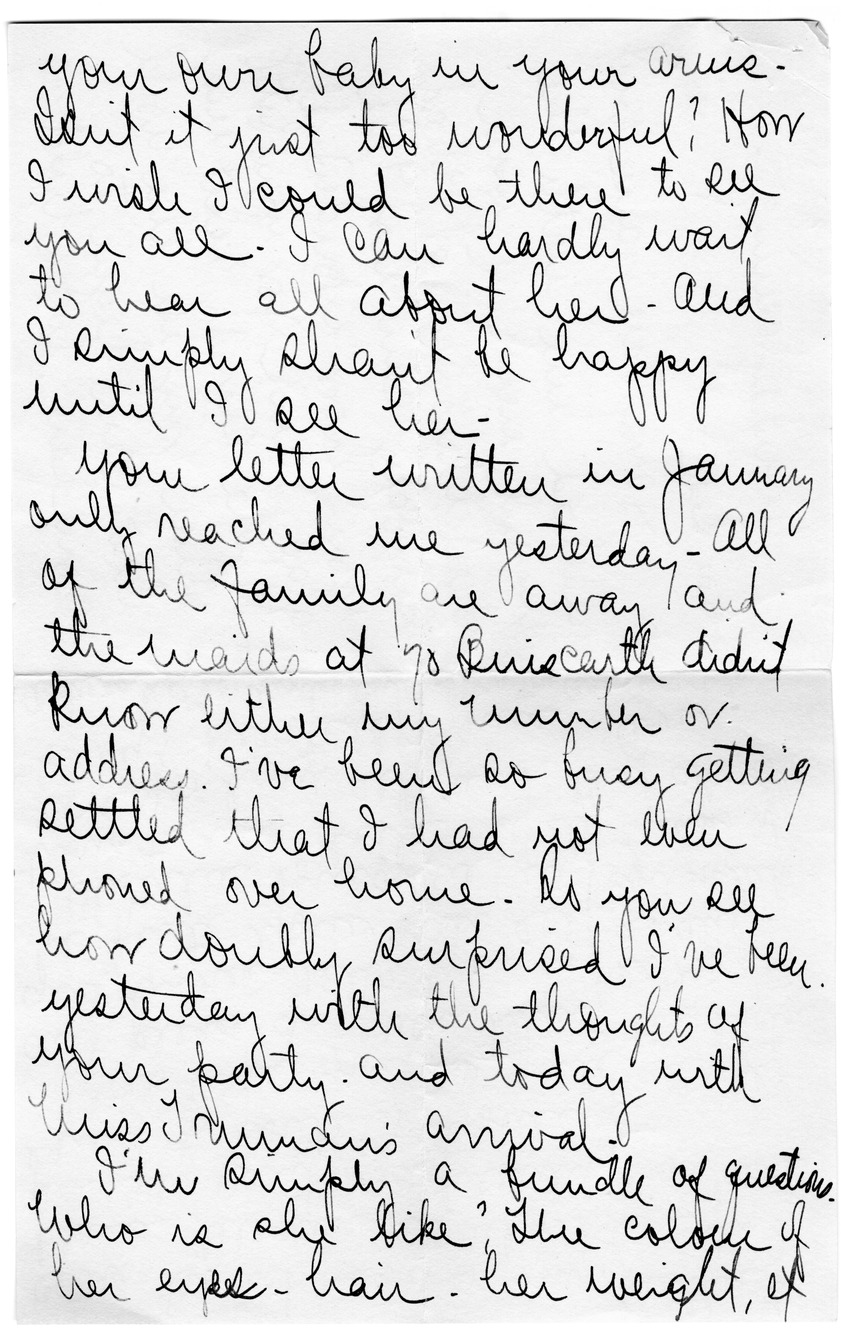 your own baby in your arms.
Isn't it just too wonderful? How
I wish I could be there to see
you all. I can hardly wait
to hear all about her. And
I simply shan't be happy
until I see her.
Your letter written in January
only reached me yesterday. All
of the family are away and
the maids at 70 Binscarth didn't
know either my number or
address. I've been so busy getting
settled that I had not even
phoned over home. So you see
how doubly surprised I've been.
yesterday with the thoughts of
your party. and today with
Miss arrival.
I'm simply a bundle of questions.
Who is she like? The colour of
her eyes - hair - her weight, et